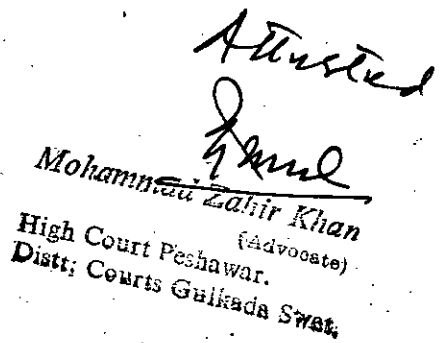 Attested
Mohammad Zahir Khan
(Advocate)
High Court Peshawar.
Distt; Courts Gulkada Swat,